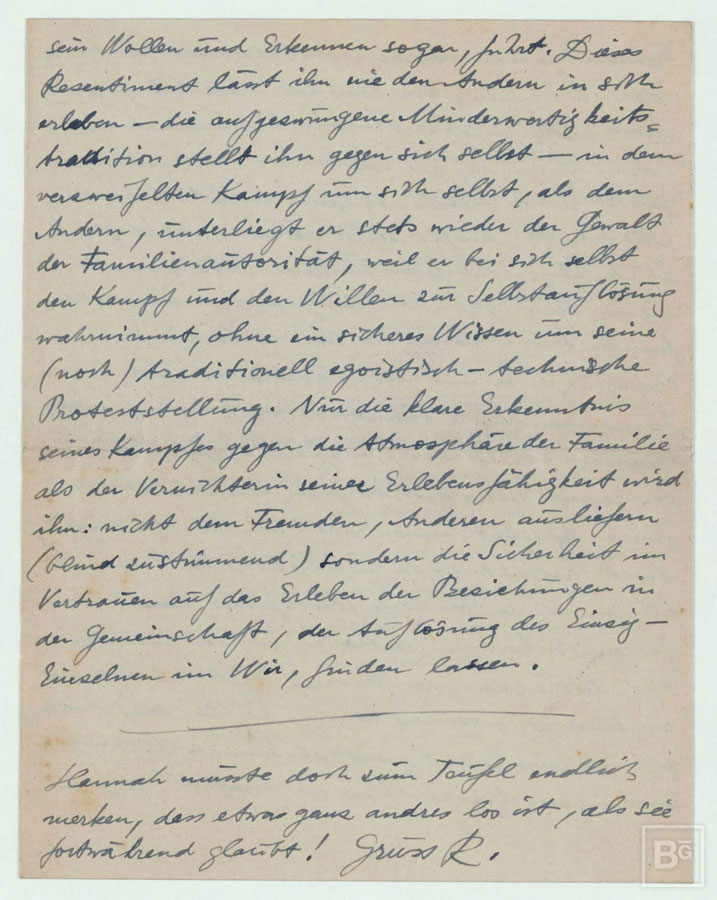 sein Wollen und Erkennen sogar, führt. Dieses
Resentiment lässt ihn nie den Andern in sich
erleben — die aufgeswungene Minderwertigkeits=
tradition stellt ihn gegen sich selbst — in dem
verzweifelten Kampf um sich selbst, als dem
Andern, unterliegt er stets wieder der Gewalt
der Familienautorität, weil er bei sich selbst
den Kampf und den Willen zur Selbstauflösung
wahrnimmt, ohne ein sicheres Wissen um seine
(noch) traditionell egoistisch – technische
Proteststellung. Nur die klare Erkenntnis
seines Kampfes gegen die Atmosphäre der Familie
als der Vernichterin seiner Erlebensfähigkeit wird
ihn: nicht dem Fremden, Anderen ausliefern
(blind zustimmend) sondern die Sicherheit im
Vertrauen auf das Erleben der Beziehungen in
der Gemeinschaft, der Auflösung des Einzig –
Einzelnen im Wir, finden lassen.
Hannah müsste doch zum Teufel endlich
merken, dass etwas ganz andres los ist, als sie
fortwährend glaubt! Gruss R.
BG